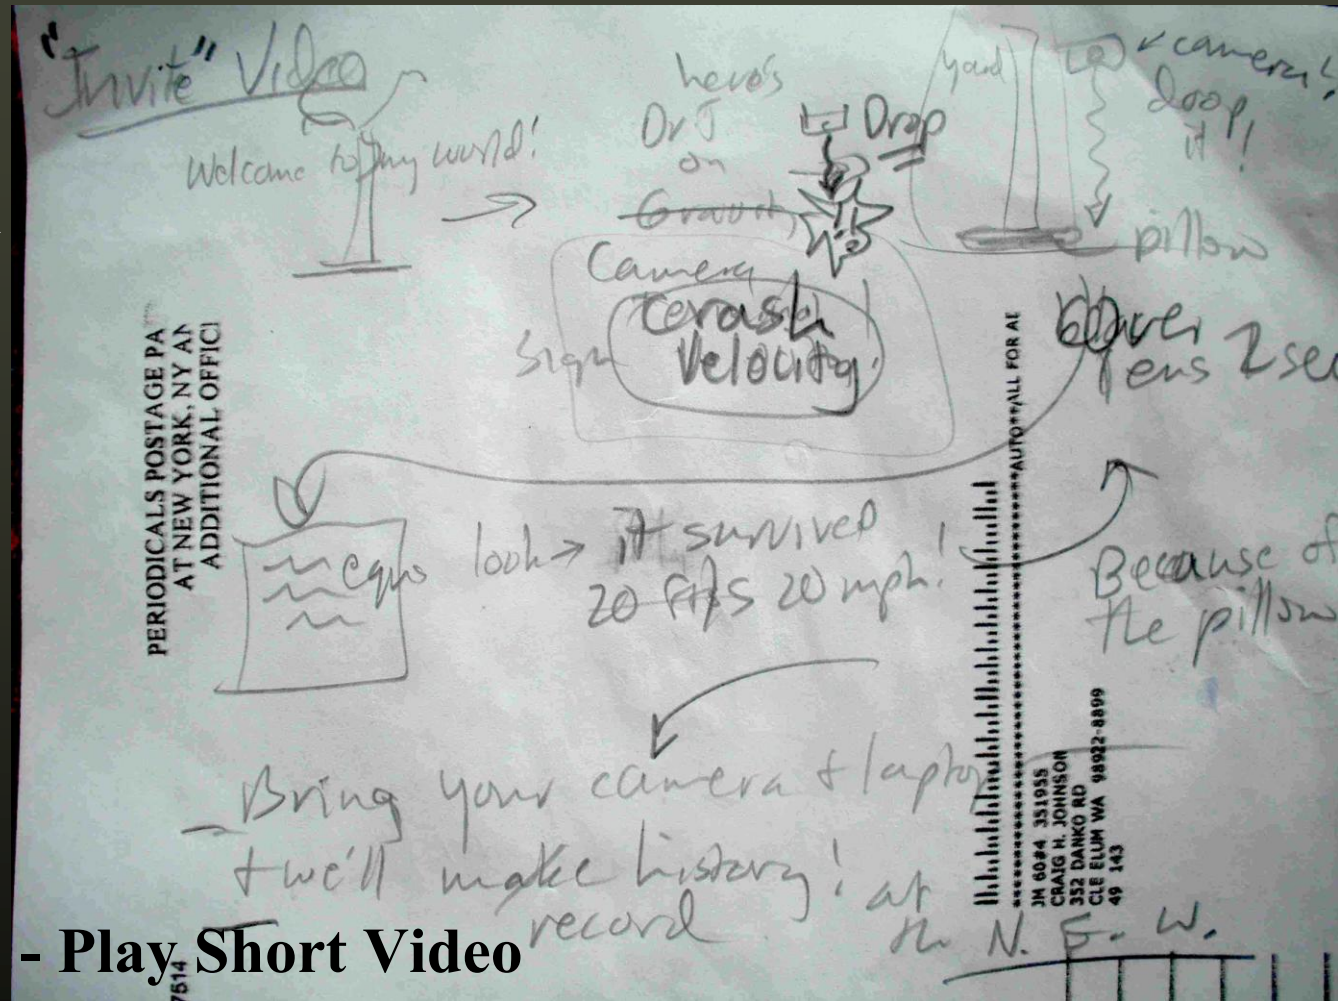 "Invite" Video
Welcome to my world!
here's
Dr J
on
Gravity
Drop
yard
camera!
drop
it!
pillow
Camera
crash
Velocity
sign
Over
lens 2 sec
PERIODICALS POSTAGE PA
AT NEW YORK, NY AN
ADDITIONAL OFFICI
eqns
look → it survived
20 ft/s 20 mph!
Because of
the pillow
**AUTO**ALL FOR AE
JM 60#4 351955
CRAIG H. JOHNSON
352 DANKO RD
CLE ELUM WA 98922-8899
49 143
Bring your camera + laptop
+ we'll make history! at
record the N. E. W.
- Play Short Video
7514